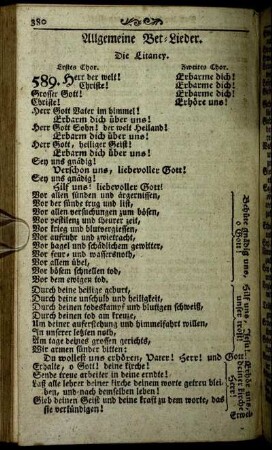 380
Allgemeine Bet-Lieder.
Die Litaney.
Erstes Chor. Zweites Chor.
589. Herr der welt! Erbarme dich!
Christe! Erbarme dich!
Grosser Gott! Erbarme dich!
Christe! Erhöre uns!
Herr Gott Vater im himmel!
Erbarm dich über uns!
Herr Gott Sohn! der welt Heiland!
Erbarm dich über uns!
Herr Gott, heiliger Geist!
Erbarm dich über uns!
Sey uns gnädig!
Verschon uns, liebevoller Gott!
Sey uns gnädig!
Hilf uns liebevoller Gott!
Vor allen sünden und ärgernissen,
Vor der sünde trug und list,
Vor allen versuchungen zum bösen,
Vor pestilenz und theurer zeit,
Vor krieg und blutvergiessen,
Vor aufruhr und zwietracht,
Vor hagel und schädlichem gewitter,
Vor feur- und wassersnoth,
Vor allem übel,
Vor bösem schnellen tod,
Vor dem ewigen tod.
Behüte gnädig uns, o Gott!
Durch deine heilige geburt,
Durch deine unschuld und heiligkeit,
Durch deinen todeskampf und blutigen schweiß,
Durch deinen tod am kreuze,
Um deiner auferstehung und himmelfahrt willen,
In unserer letzten noth,
Am tage deines grossen gerichts,
Hilf uns, Jesu! unser trost!
Wir armen sünder bitten:
Du wollest uns erhören, Vater! Herr! und Gott
Erhalte, o Gott! deine kirche!
Sende treue arbeiter in deine erndte!
Laß alle lehrer deiner kirche deinem worte getreu bleiben, und nach demselben leben!
Gieb deinen Geist und deine kraft zu dem worte, das sie verkündigen!